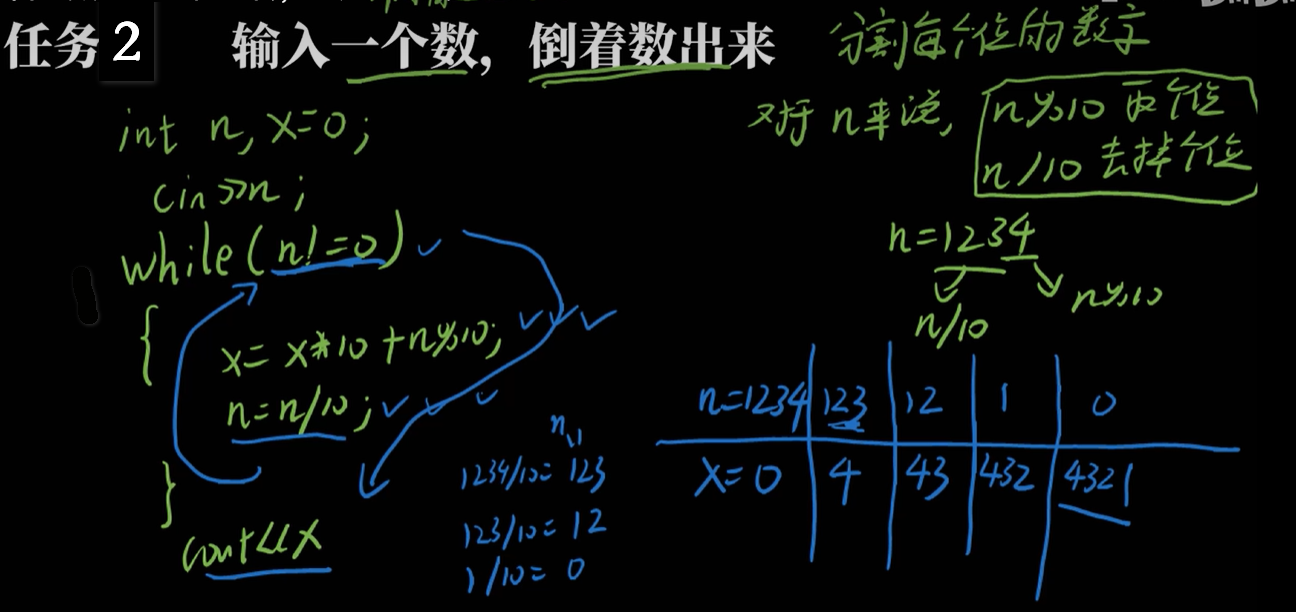 任务2 输入一个数，倒着数出来
分割每个位的数字
对于n来说，
n%10 取个位
n/10 去掉个位
int n, x=0;
cin>>n;
while(n!=0)
{
x= x*10 +n%10;
n=n/10;
}
cout<<x
n=1234
n/10
n%10
n
1234/10= 123
123/10= 12
1/10= 0
n=1234 123 12 1 0
x=0 4 43 432 4321